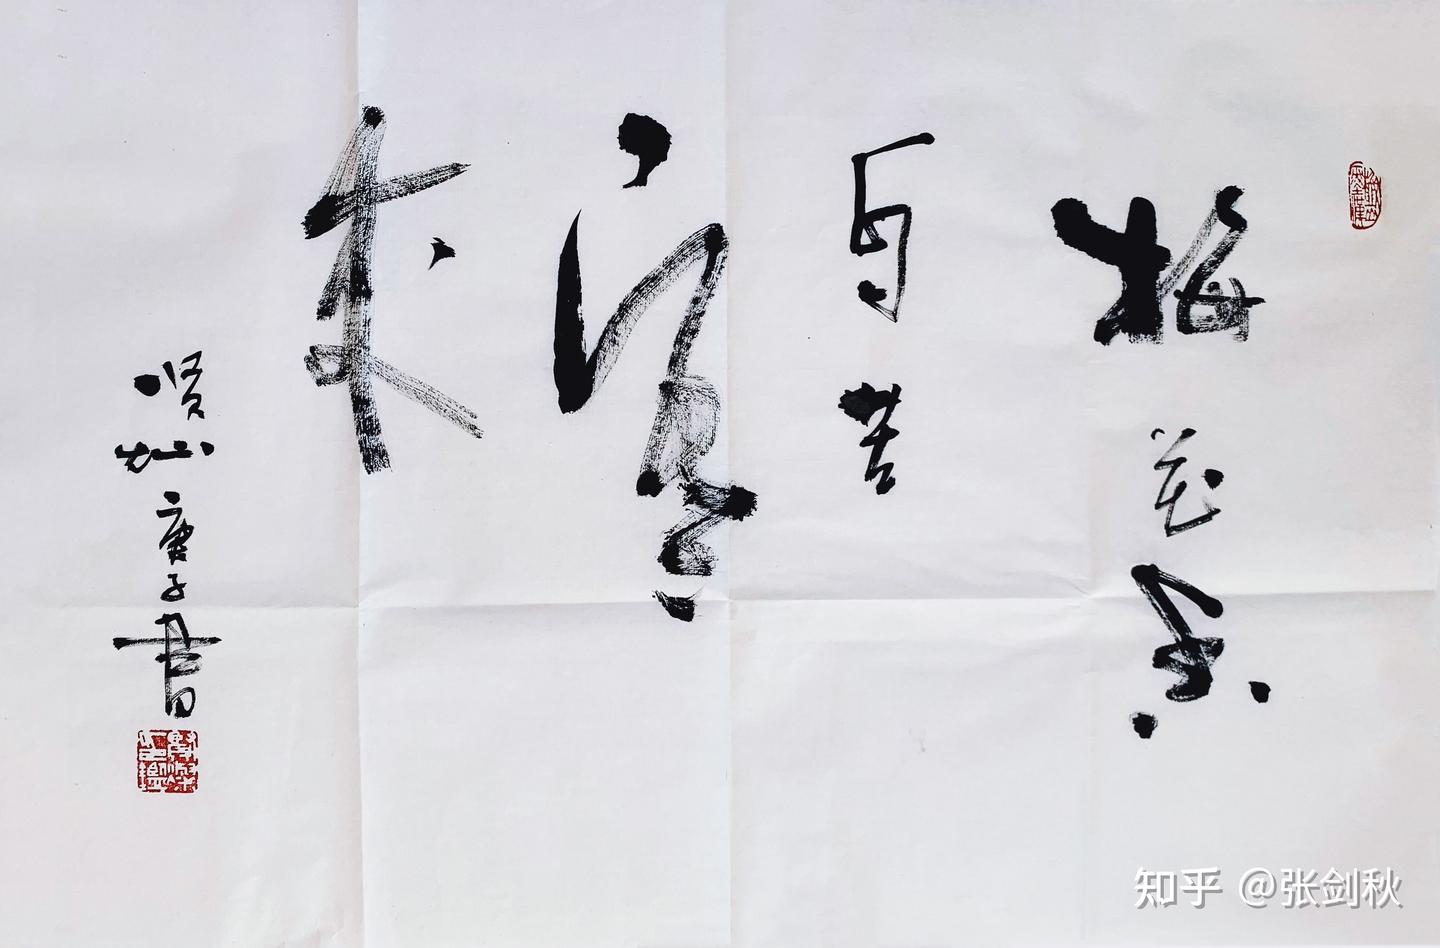 梅花香
自苦
寒
来
贤灿庚子书
知乎 @张剑秋